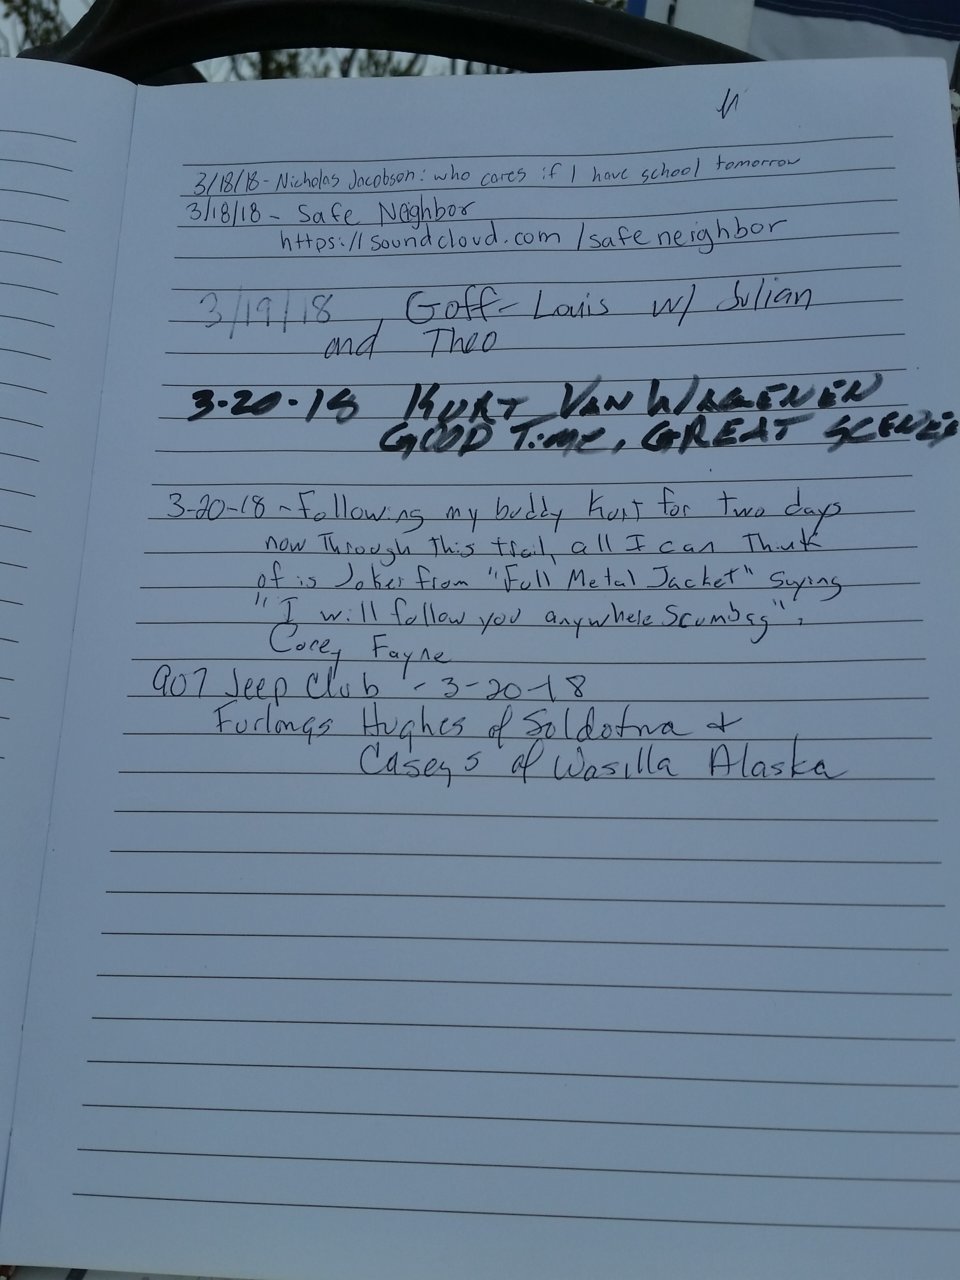 3/18/18 - Nicholas Jacobson: who cares if I have school tomorrow
3/18/18 - Safe Neighbor
https://soundcloud.com/safeneighbor
3/19/18, Goff-Louis w/ Julian
and Theo
3-20-18 KURT VAN WAGENEN
GOOD TIME, GREAT SCENES
3-20-18 - Following my buddy Kurt for two days
now Through this trail, all I can Think
of is Joker from "Full Metal Jacket" Saying
"I will follow you anywhere Scumbag".
Corey Fayne
907 Jeep Club - 3-20-18
Furlongs Hughes of Soldotna &
Caseys of Wasilla Alaska